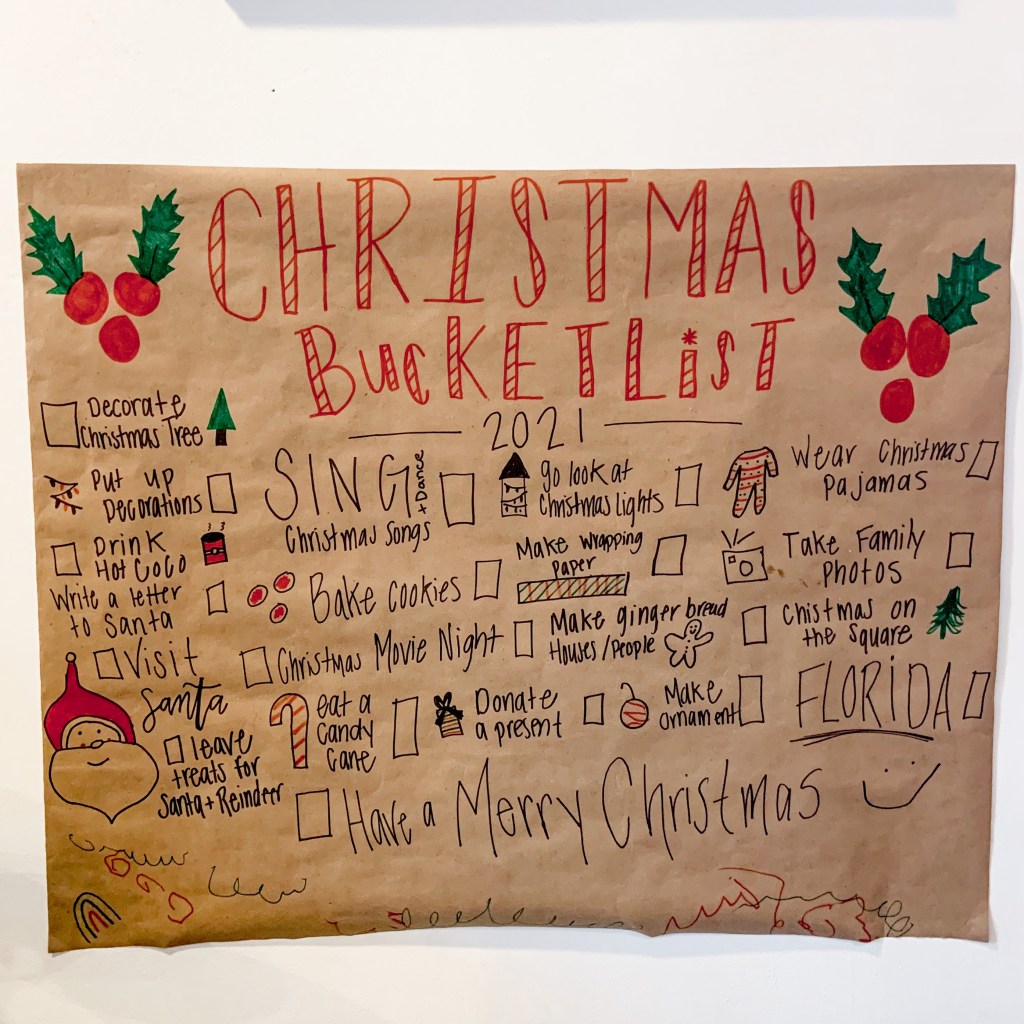 CHRISTMAS
BUCKETLIST
2021
Decorate
Christmas Tree
Put up
Decorations
Drink
Hot CoCo
Write a letter
to Santa
Visit
Santa
leave
treats for
Santa + Reindeer
SING
+ Dance
Christmas Songs
Bake cookies
Christmas Movie Night
eat a
Candy
Cane
go look at
Christmas lights
Make wrapping
paper
Make ginger bread
Houses/People
Donate
a present
Make
ornament
Wear Christmas
Pajamas
Take Family
Photos
Chistmas on
the Square
FLORIDA
Have a Merry Christmas